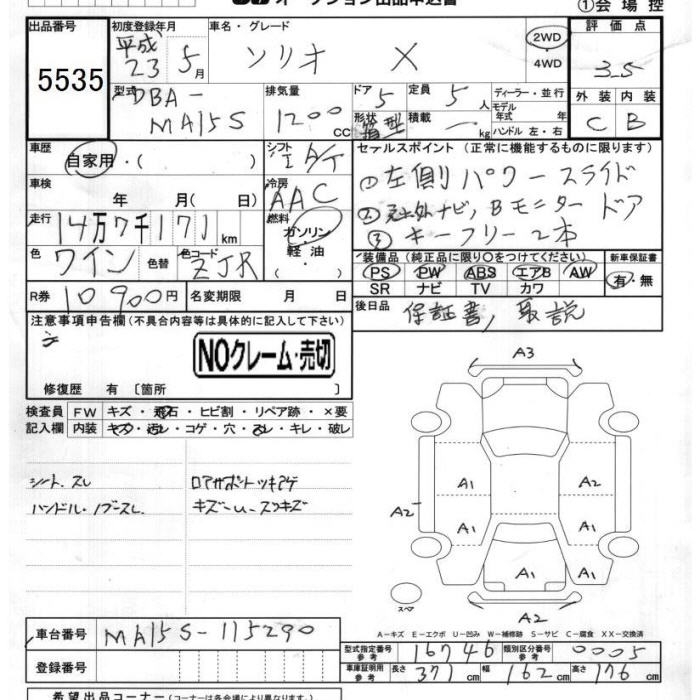 オークション出品申込書
①会場控
出品番号 5535
初度登録年月 平成23 5月
車名・グレード ソリオ X
2WD
4WD
評価点 3.5
外装 内装
C B
型式 DBA-MA15S
排気量 1200cc
ドア 5
定員 5人
形状 箱型
積載 kg
ディーラー・並行
モデル年式 年式
ハンドル 左・右
車歴 自家用・( )
シフト I A/T
車検 年 月( 日)
冷房 AAC
走行 14万7千171km
燃料 ガソリン・軽油・
色 ワイン 色替
色コード ZJR
R券 10900円
名変期限 月 日
セールスポイント (正常に機能するものに限ります)
①左側パワースライドドア
② 社外ナビ、Bモニター
③ キーフリー2本
装備品 (純正品に限り○をつけてください)
PS PW ABS エアB AW
SR ナビ TV カワ
新車保証書
有・無
後日品 保証書, 取説
注意事項申告欄(不具合内容等は具体的に記入して下さい)
NOクレーム・売切
修復歴 有〔箇所 〕
検査員記入欄
FW キズ・飛石・ヒビ割・リペア跡・×要
内装 キズ・汚レ・コゲ・穴・スレ・キレ・破レ
シート スレ
ハンドル・ノブースレ
ロアサポートツキアゲ
キズ-U-スリキズ
A3
A1 A2
A2
A1 A1
A1 A1
A2
スペア
A-キズ E-エクボ U-凹み W-補修跡 S-サビ C-腐食 XX-交換済
車台番号 MA15S-115290
登録番号
型式指定番号 参考 16746
類別区分番号 参考 0005
車庫証明用 参考 長さ 371cm 幅 162cm 高さ 176cm
希望出品コーナー (コーナーは各会場により異なります。)